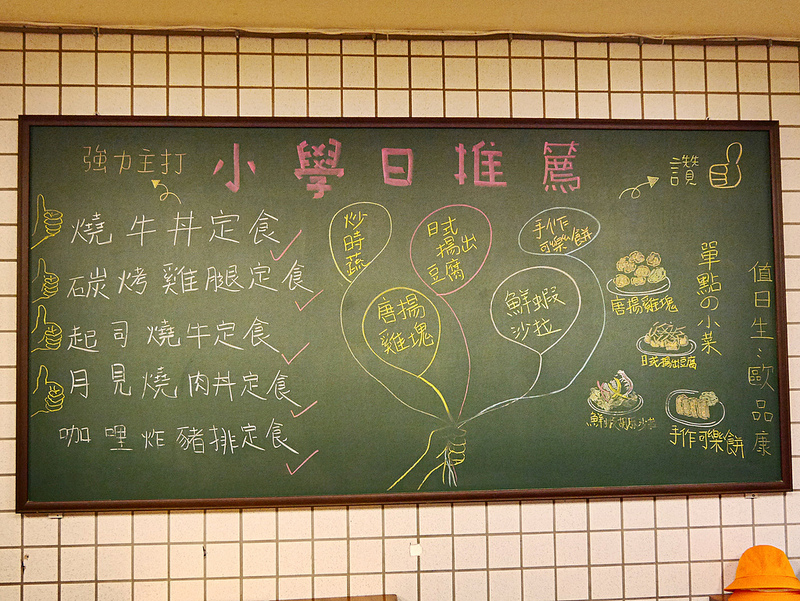 小學日推薦
強力主打
讚
燒牛丼定食
碳烤雞腿定食
起司燒牛定食
月見燒肉丼定食
咖哩炸豬排定食
炒時蔬
日式
揚出
豆腐
手作
可樂餅
唐揚
雞塊
鮮蝦
沙拉
單點の小菜
唐揚雞塊
日式揚出豆腐
手作可樂餅
值日生:歐品康